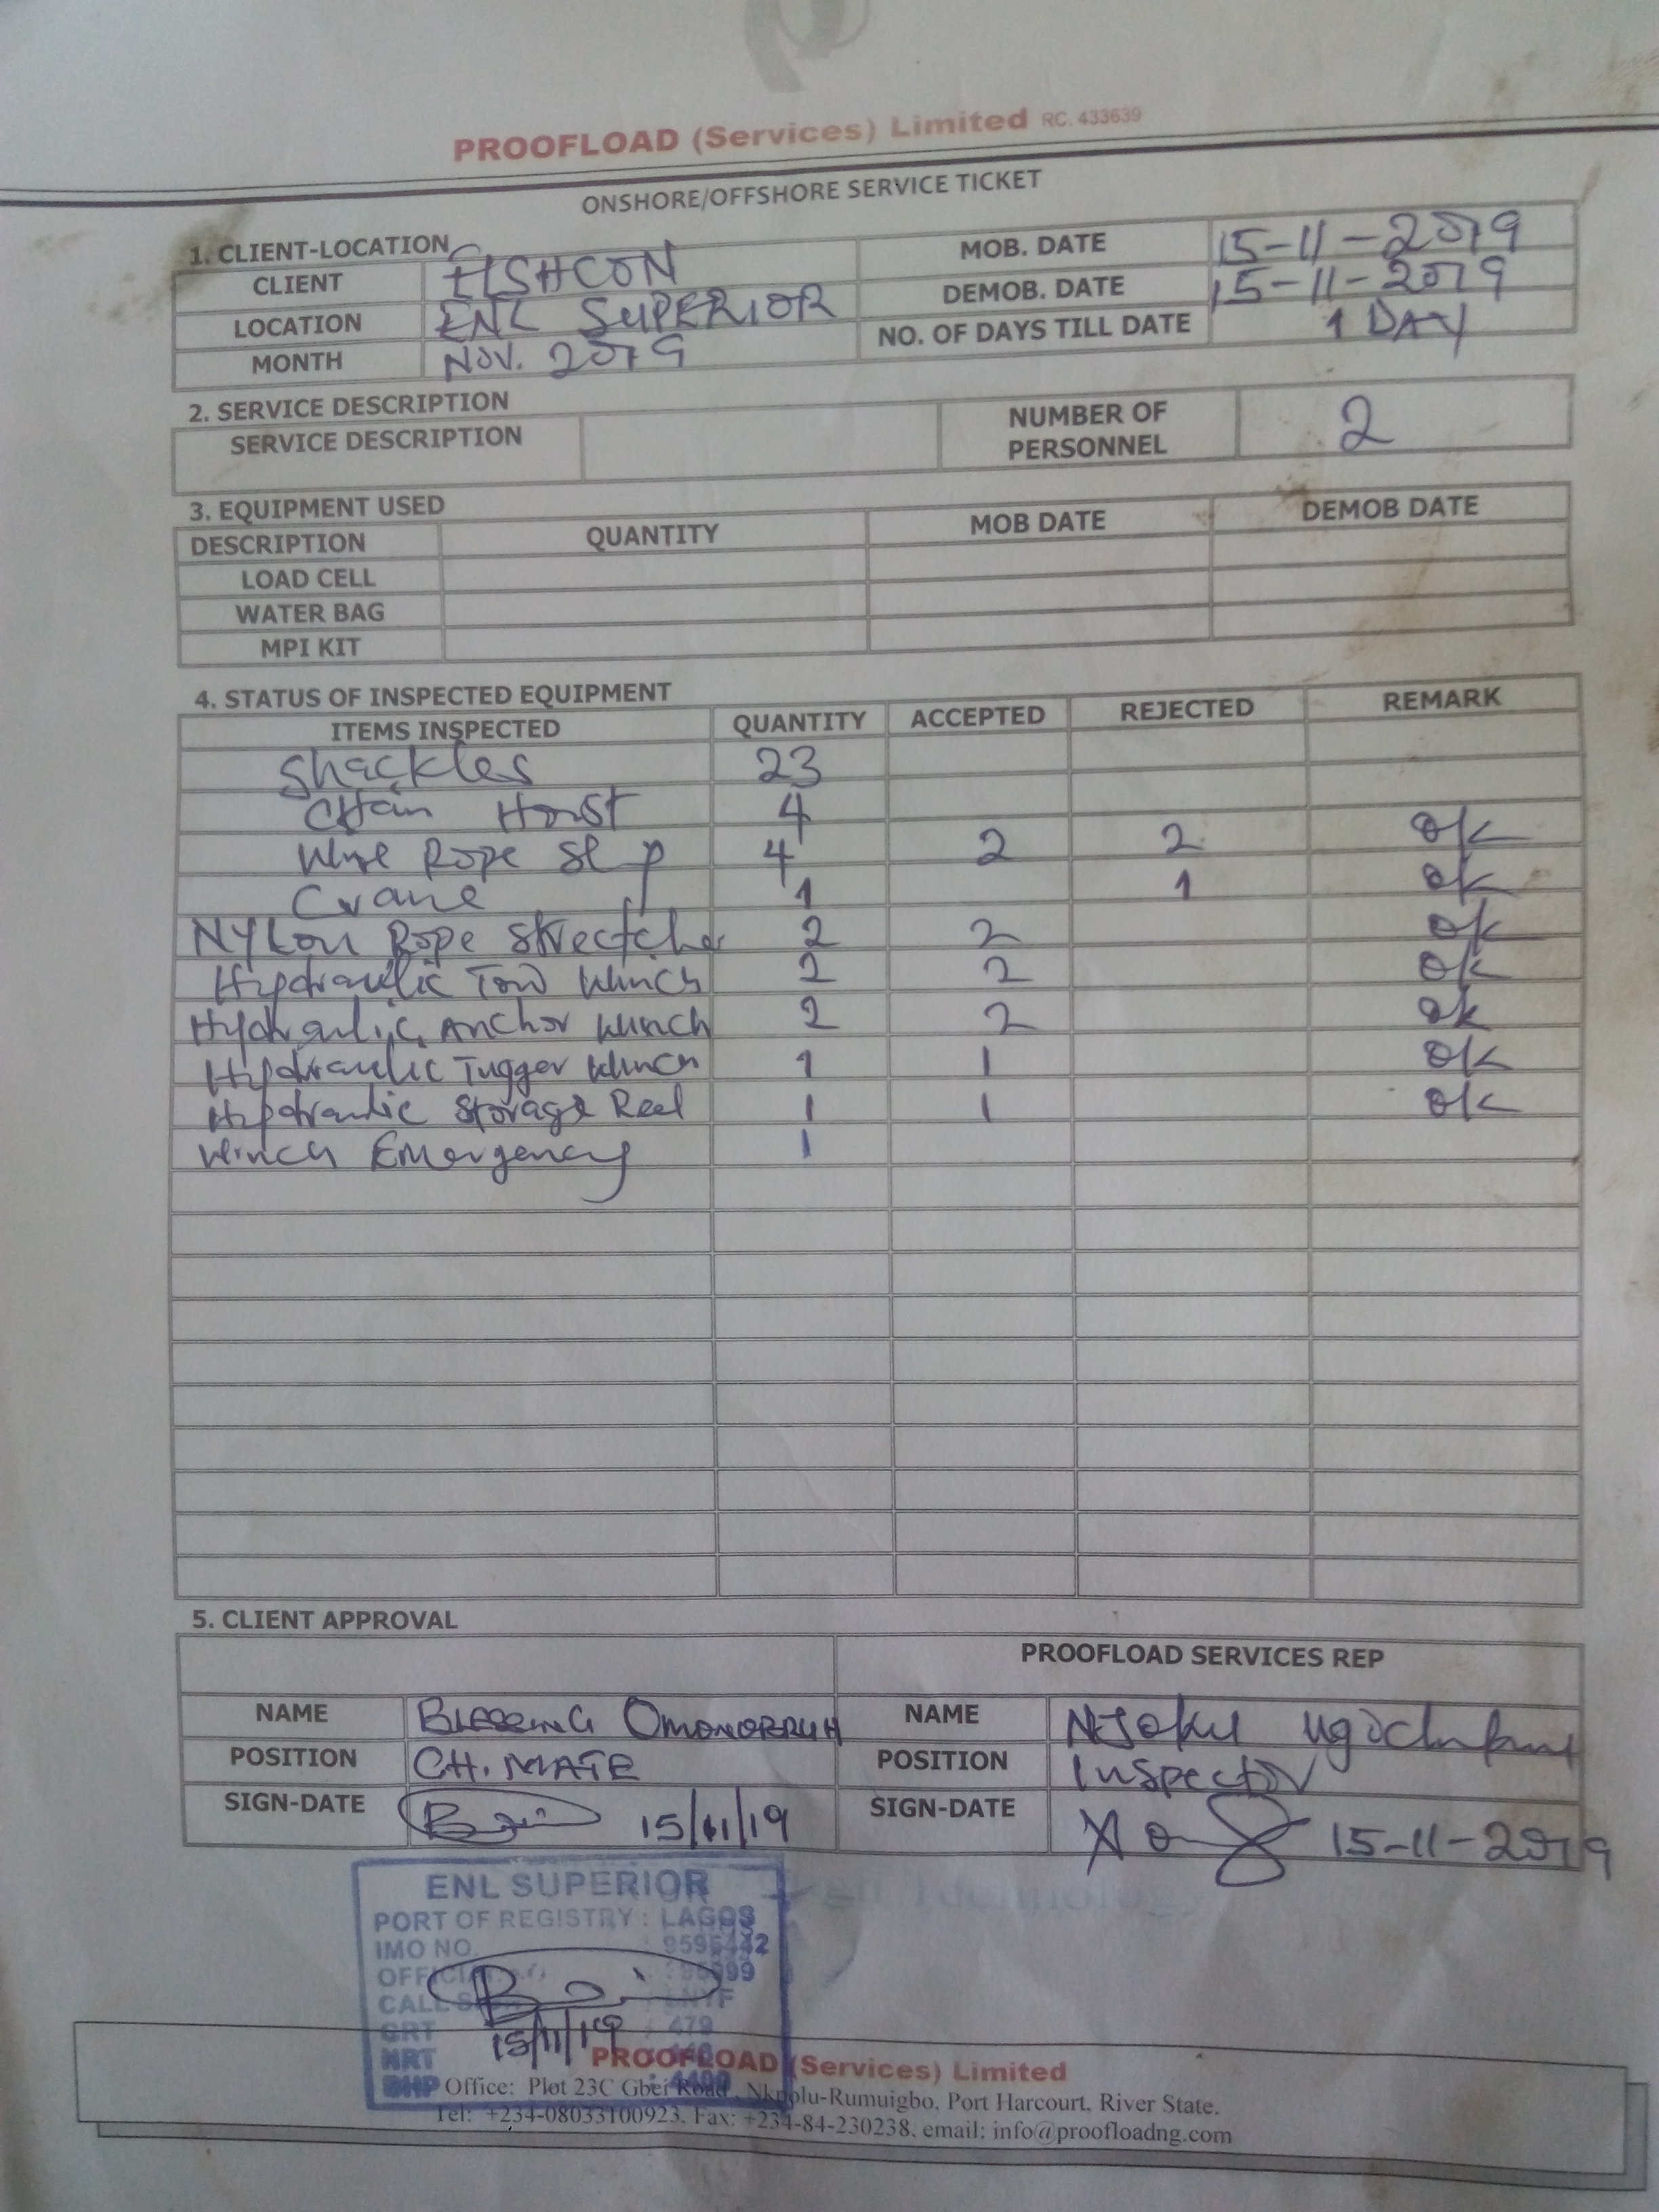 PROOFLOAD (Services) Limited RC. 433639
ONSHORE/OFFSHORE SERVICE TICKET
1. CLIENT-LOCATION
CLIENT FISHCON MOB. DATE 15-11-2019
LOCATION ENL SUPERIOR DEMOB. DATE 15-11-2019
MONTH NOV. 2019 NO. OF DAYS TILL DATE 1 DAY
2. SERVICE DESCRIPTION
SERVICE DESCRIPTION NUMBER OF PERSONNEL 2
3. EQUIPMENT USED
DESCRIPTION QUANTITY MOB DATE DEMOB DATE
LOAD CELL
WATER BAG
MPI KIT
4. STATUS OF INSPECTED EQUIPMENT
ITEMS INSPECTED QUANTITY ACCEPTED REJECTED REMARK
Shackles 23
Chain Hoist 4
Wire Rope 4 2 2 ok
Crane 1 1 ok
Nylon Rope Stretcher 2 2 ok
Hydraulic Tow Winch 2 2 ok
Hydraulic Anchor Winch 2 2 ok
Hydraulic Tugger Winch 1 1 ok
Hydraulic Storage Reel 1 1 ok
Winch Emergency 1
5. CLIENT APPROVAL
PROOFLOAD SERVICES REP
NAME BLESSING NAME Njoku
POSITION CH. MATE POSITION Inspector
SIGN-DATE 15/11/19 SIGN-DATE 15-11-2019
ENL SUPERIOR
PORT OF REGISTRY : LAGOS
IMO NO.
CALL
GRT : 479
NRT
BHP
15/11/19
PROOFLOAD (Services) Limited
Office: Plot 23C Gbei Road, Nkpolu-Rumuigbo, Port Harcourt, River State.
Tel: +234-08033100923, Fax: +234-84-230238, email: info@proofloadng.com